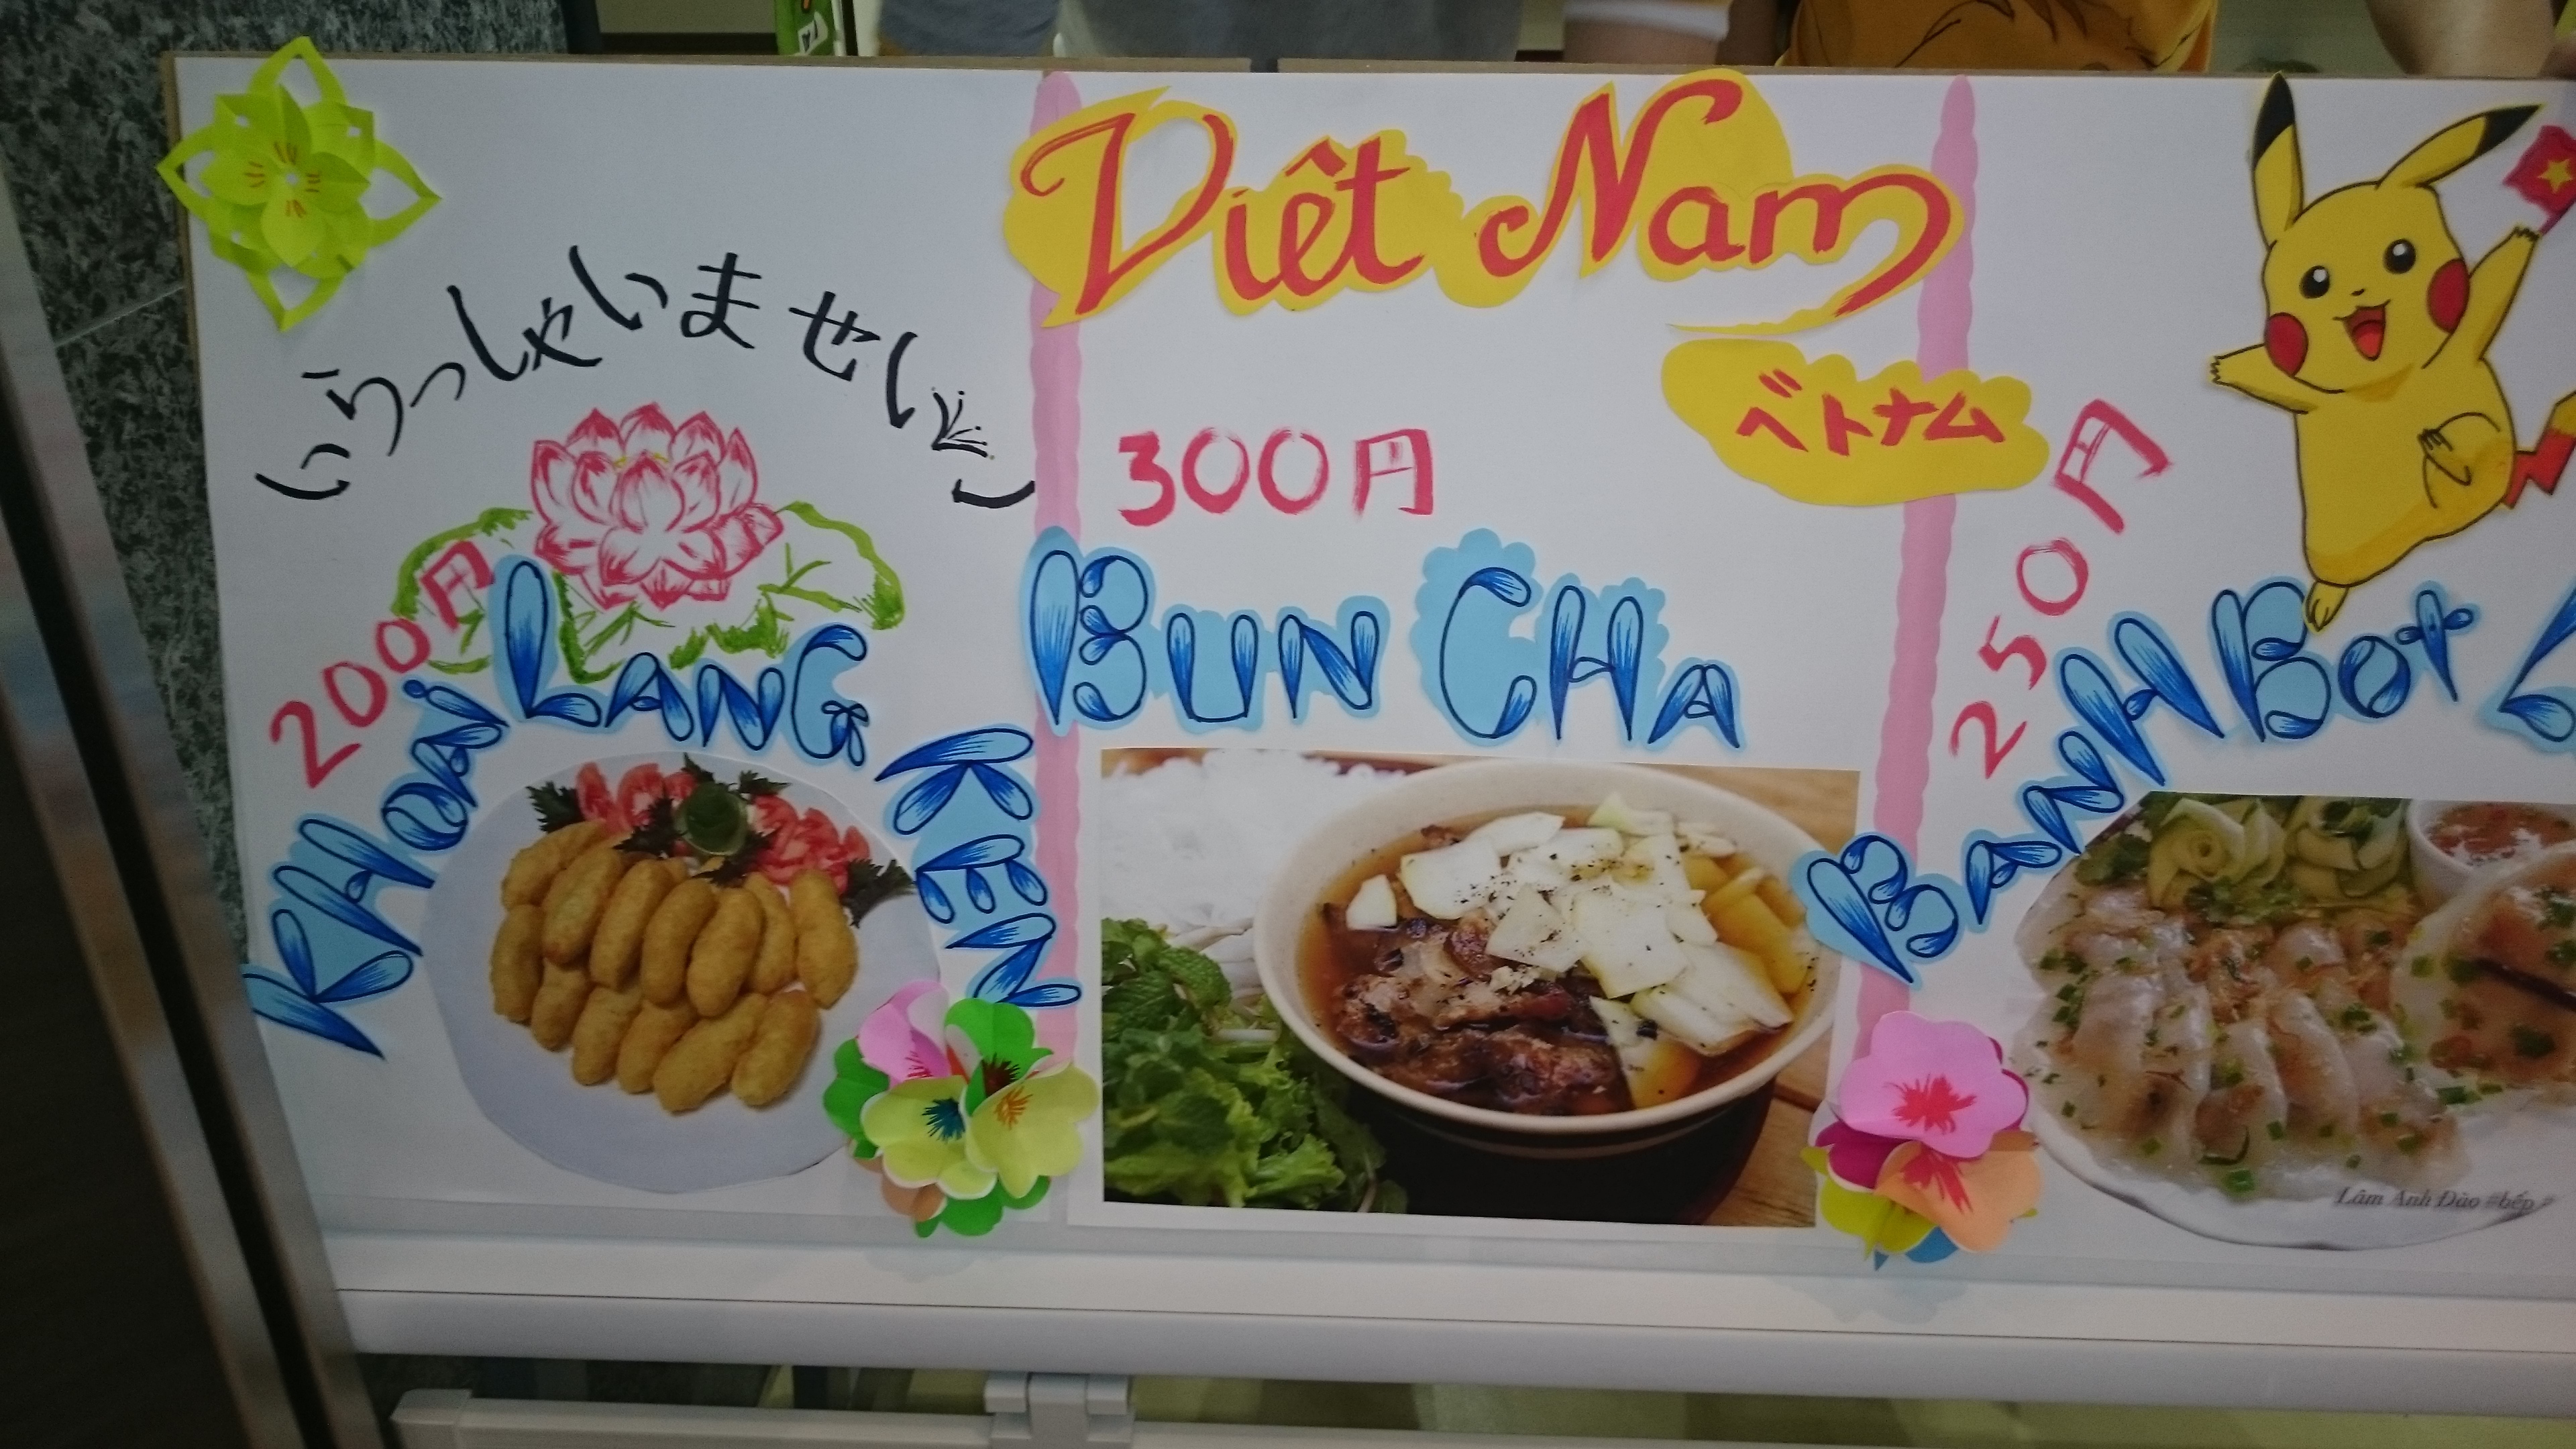 Việt Nam
ベトナム
いらっしゃいませ
200円
KHOAI LANG KEN
300円
BUN CHA
250円
BANH BOT L
Lâm Anh Đào #bếp #